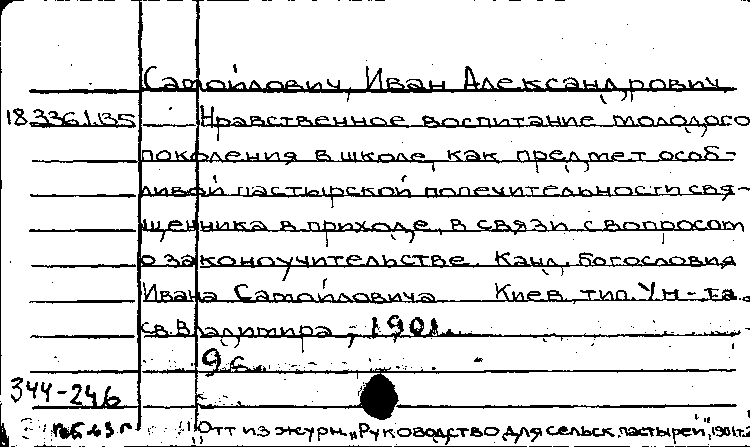 Самойлович, Иван Александрович
18.336.1.135 Нравственное воспитание молодого
поколения в школе, как предмет особ-
ливой пастырской попечительности свя-
щенника в приходе, в связи с вопросом
о законоучительстве. Канд. богословия
Ивана Самойловича Киев, тип. Ун-та
св. Владимира, 1901.
9 с.
344-246
Отт из журн. „Руководство для сельск. пастырей",